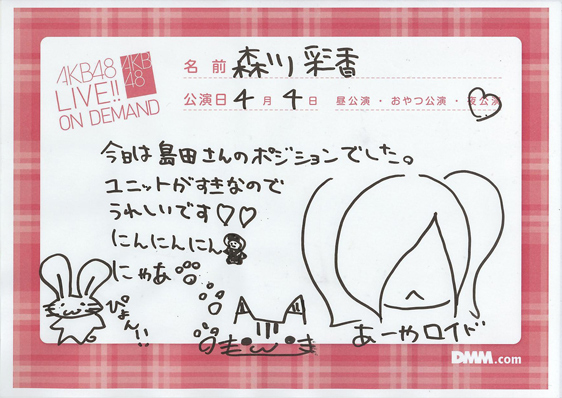 AKB48
LIVE!!
ON DEMAND
AKB
48
名前 森川彩香
公演日 4月4日 昼公演・おやつ公演・夜公演
今日は島田さんのポジションでした。
ユニットがすきなので
うれしいです♡♡
にんにんにん
にゃあ
ぴょん!!
あーやロイド
DMM.com